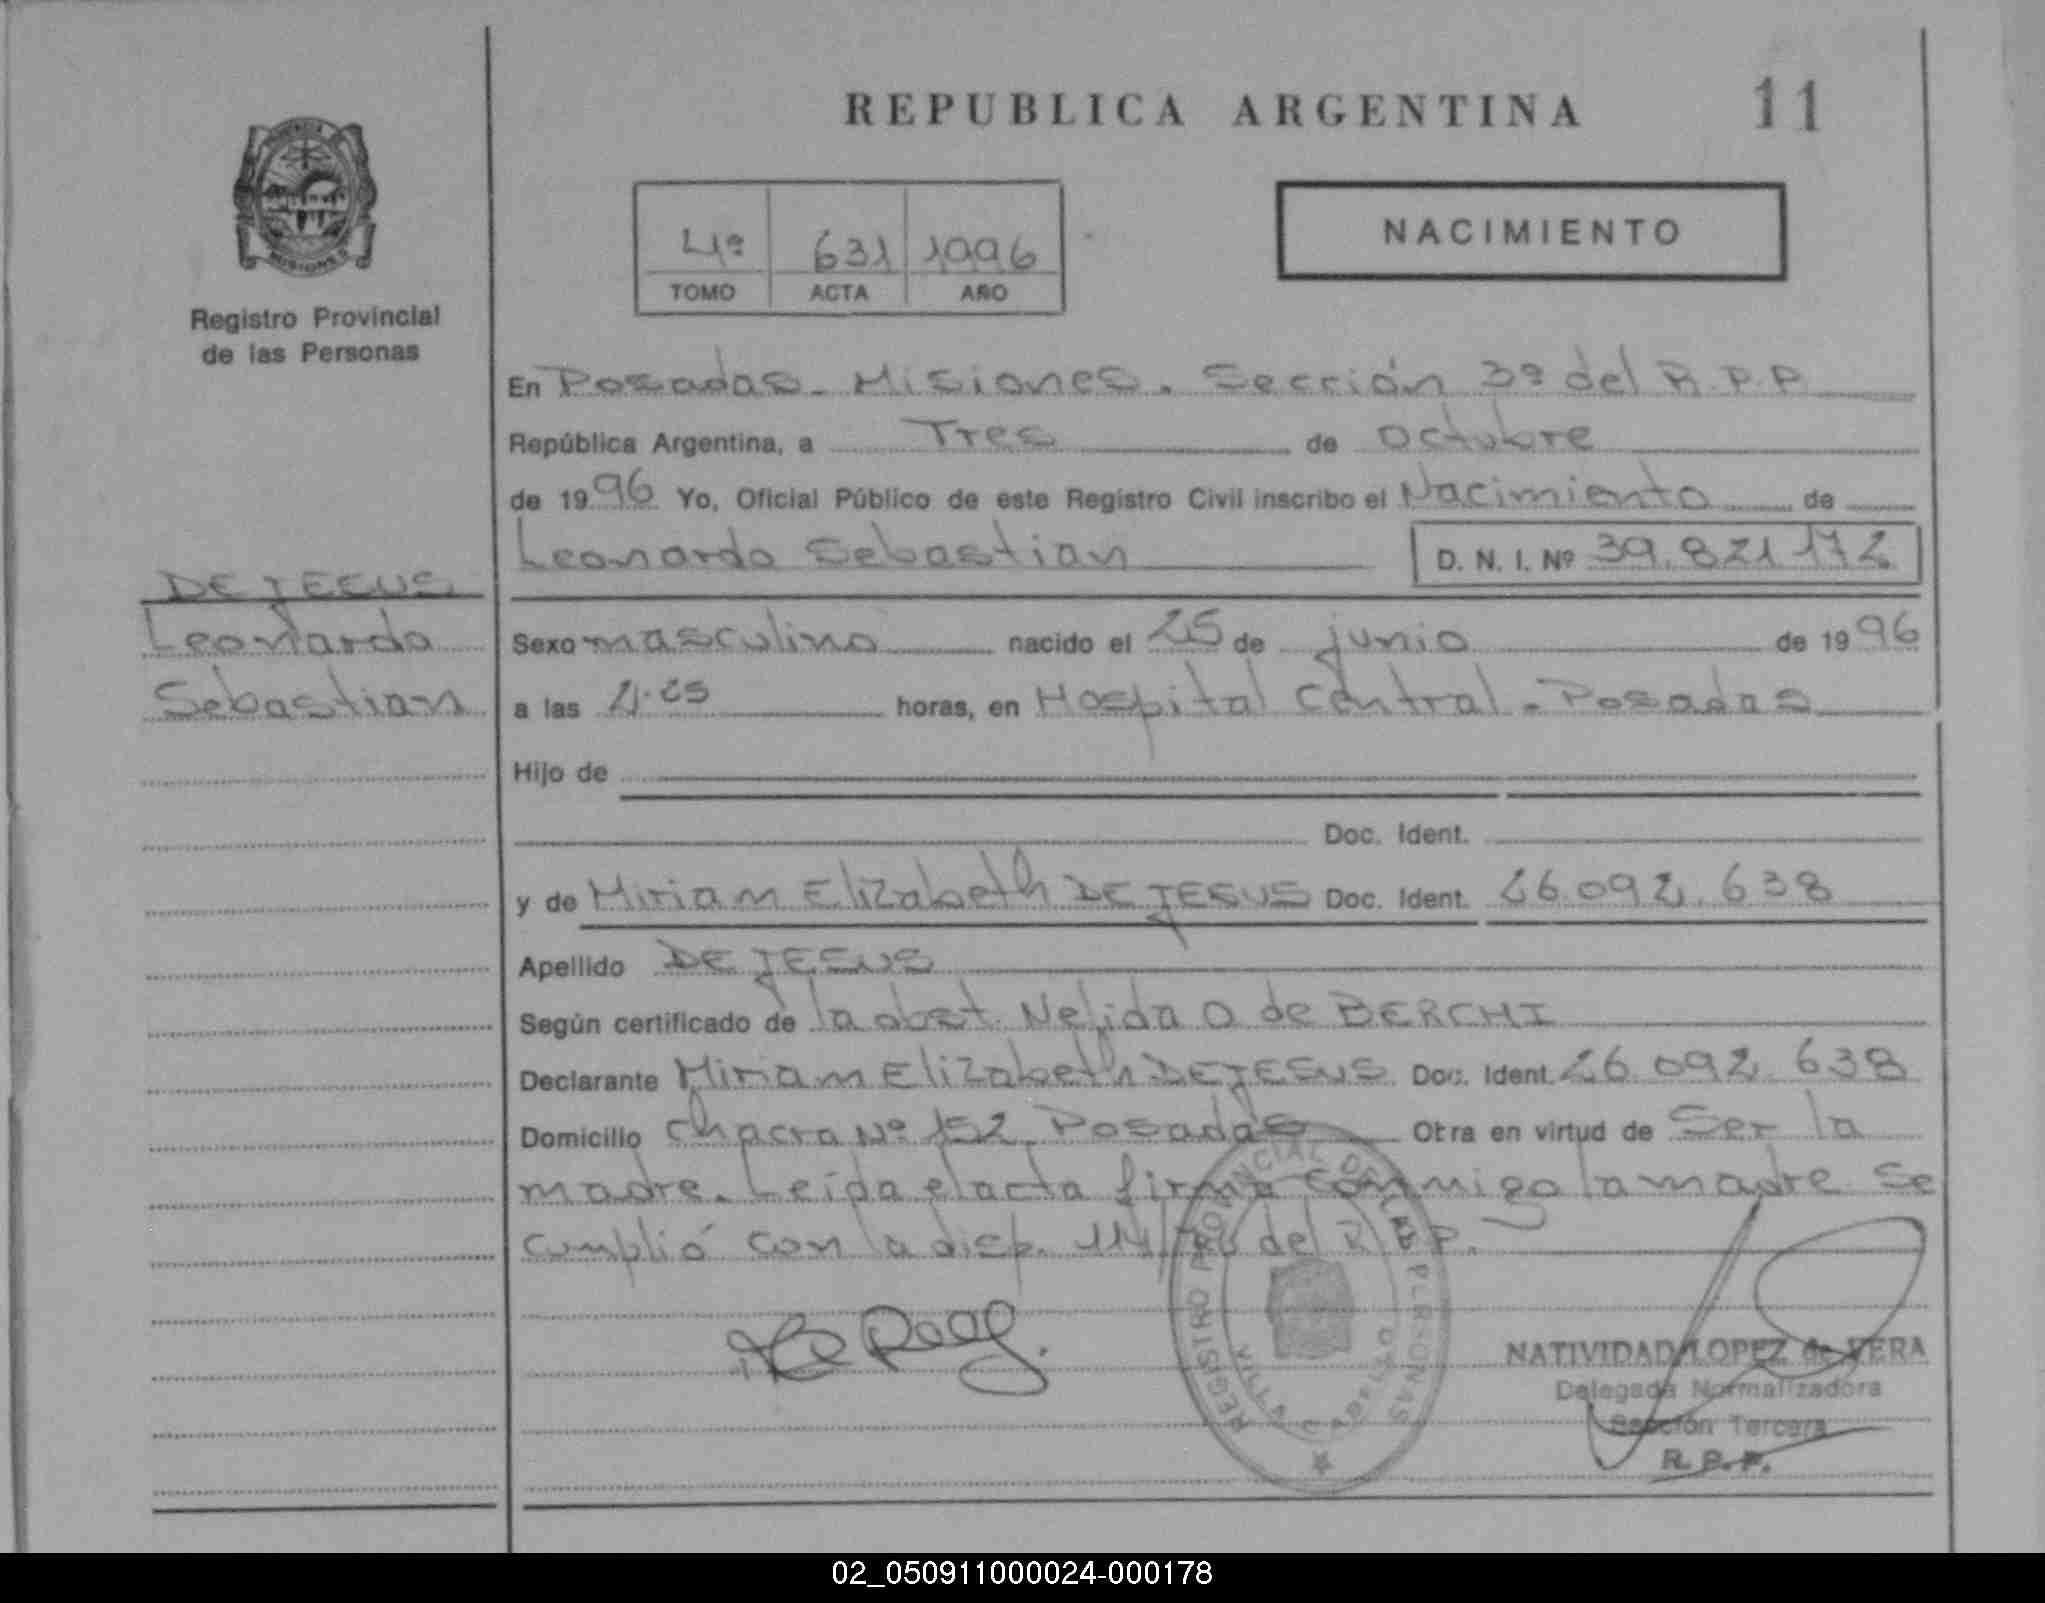 REPUBLICA ARGENTINA 11
4º 631 1996
TOMO ACTA AÑO
NACIMIENTO
MISIONES
Registro Provincial
de las Personas
En Posadas - Misiones. Sección 3º del R.P.P
República Argentina, a Tres de octubre
de 1996 Yo, Oficial Público de este Registro Civil inscribo el Nacimiento de
Leonardo Sebastian D. N. I. Nº 39.821.172
DE JESUS
Leonardo
Sebastian
Sexo masculino nacido el 25 de junio de 1996
a las horas, en Hospital Central - Posadas
Hijo de
Doc. Ident.
y de Miriam Elizabeth DE JESUS Doc. Ident. 26.092.638
Apellido DE JESUS
Según certificado de la obst. Nelida O de BERCHI
Declarante Miriam Elizabeth DE JESUS Doc. Ident. 26.092.638
Domicilio chacra Nº 152 Posadas Otra en virtud de Ser la
madre. Leida el acta firma conmigo la madre Se
cumplió con la disp. del R.P.P.
REGISTRO PROVINCIAL DE LAS PERSONAS
NATIVIDAD LOPEZ de VERA
Delegada Normalizadora
Sección Tercera
R.P.P.
02_050911000024-000178